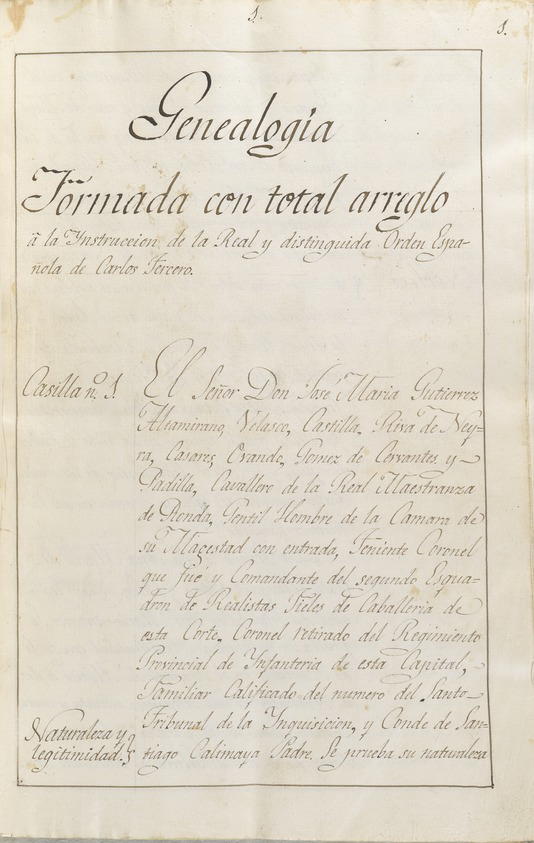 1.
1.
Genealogía
Formada con total arreglo
â la Ynstruccion de la Real y distinguida Orden Espa-
ñola de Carlos Tercero.
Casilla nº 1.
El Señor Don José Maria Gutierrez
Altamirano, Velasco, Castilla, Riva de Ney-
ra, Casares, Ovando, Gomez de Cervantes y
Padilla, Cavallero de la Real Maestranza
de Ronda, Gentil Hombre de la Camara de
su Magestad con entrada, Teniente Coronel
que fué y Comandante del segundo Esqua-
dron de Realistas Fieles de Caballeria de
esta Corte, Coronel retirado del Regimiento
Provincial de Ynfanteria de esta Capital,
Familiar Calificado del numero del Santo
Tribunal de la Ynquisicion, y Conde de San-
tiago Calimaya Padre. Se prueba su naturaleza
Naturaleza y
legitimidad.